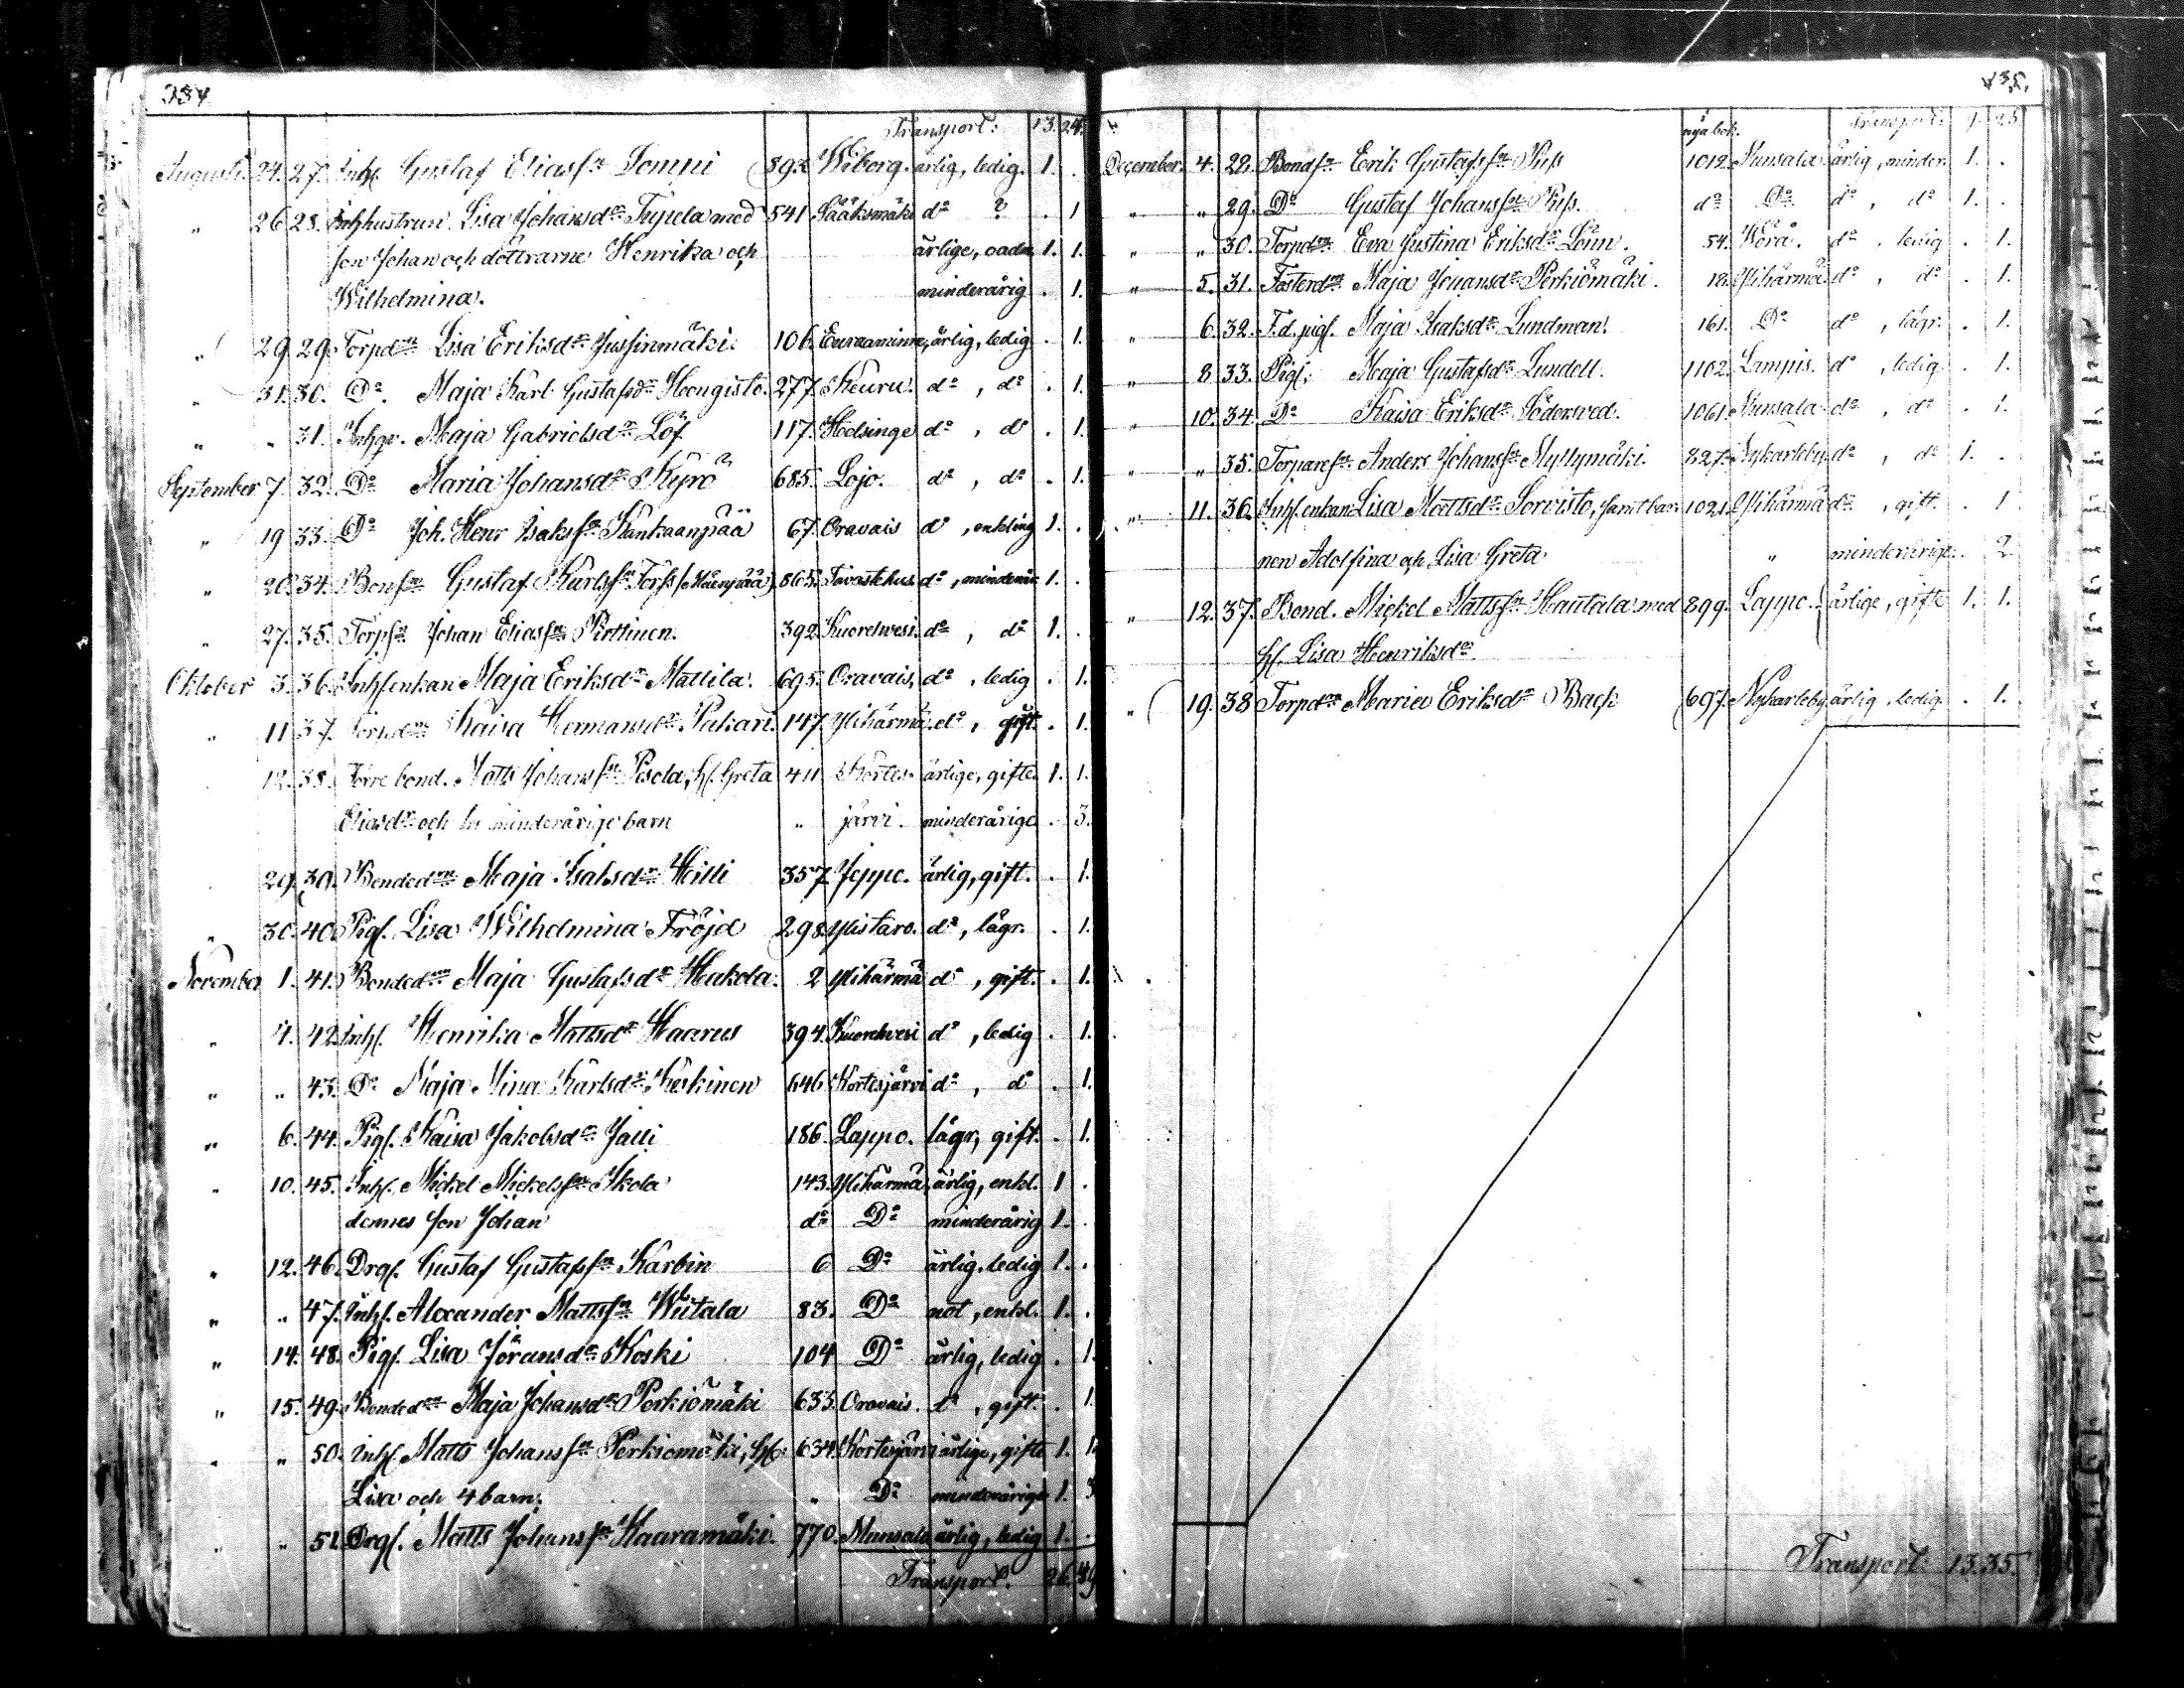 334
Transport: 13. 24.
Augusti. 24. 27. Inhs. Gustaf Eliass:n Somppi 893. Wiborg. ärlig, ledig. 1. .
" 26 28. Inhshustrun Lisa Johansd:r Tupela med 541 Sääksmäki d:o ? . 1
son Johan och döttrarne Henrika och ärlige, oadm 1. 1.
Wilhelmina. minderårig . 1.
" 29. 29. Torpd:rn Lisa Eriksd:r Jussinmäki. 106. Euraaminne, ärlig, ledig . 1.
" 31. 30. D:o Maja Karl Gustafsd:r Hongisto. 277. Keuru. d:o, d:o . 1.
" " 31. Maja Gabrielsd:r Löf 117. Helsinge d:o, d:o . 1.
September 7. 32. D:o Maria Johansd:r Kyrö 685. Lojo. d:o, d:o . 1.
" 19 33. D:o Joh. Henr Isakss:n Kankaanpää 67. Oravais d:o, enkling 1. .
" 20. 34. Bons:n Gustaf Karlss:n 865. Tavastehus. d:o, minderår 1. .
" 27. 35. Torps:n Johan Eliass:n Pirttinen. 392. Kuorelwesi. d:o, d:o 1. .
Oktober 3. 36. Inhsenkan Maja Eriksd:r Mattila. 695. Oravais. d:o, ledig . 1.
" 11 37. Torpd:rn Kaisa Hermansd:r Pukari. 147. Ylihärmä. d:o, gift. . 1.
12. 38. Förre bond. Matts Johanss:n Pesola, Hs. Greta 411. Kortes- ärlige, gifte 1. 1.
Eliasd:r och minderårige barn " järvi. minderårige . 3.
29. 39. Bonded:rn Maja Isaksd:r Hilli 357. Jeppo. ärlig, gift. . 1.
" 30. 40. Pigs. Lisa Wilhelmina Fröjd 298. Ylistaro. d:o, lägr. . 1.
November 1. 41. Bonded:rn Maja Gustafsd:r Hakola. 2 Ylihärmä d:o, gift. . 1.
" 4. 42. Inhs. Henrika Mattsd:r Haarus 394. Kuorelwesi d:o, ledig . 1.
" " 43. D:o Maja Mina Karlsd:r Keskinen 646. Kortesjärvi d:o, d:o . 1.
" 6. 44. Pigs. Kaisa Jakobsd:r Jalli 186. Lappo. lägr, gift. . 1.
" 10. 45. Inhs. Mickel Mickelss:n Ikola 143. Ylihärmä, ärlig, enkl. 1 .
dennes son Johan d:o D:o minderårig 1. .
" 12. 46. Drgs. Gustaf Gustafss:n Karbin 6 D:o ärlig. ledig 1. .
" " 47. Inhs. Alexander Mattss:n Wiitala 83. D:o not, enkl. 1. .
" 14. 48. Pigs. Lisa Jöransd:r Koski 104 D:o ärlig, ledig . 1.
" 15. 49. Bonded:rn Maja Johansd:r Perkiömäki 633. Oravais. d:o, gift. . 1.
" " 50. Inhs. Matts Johanss:n Perkiomäki, Hs. 634. Kortesjärvi ärlige, gifte 1. 1.
Lisa och 4 barn. " D:o minderårige 1. 3
" " 51. Drgs. Matts Johanss:n Haaramäki. 770. Munsala ärlig, ledig 1. .
Transport. 26. 49
135.
nya bok. Transport: 9. 25.
December. 4. 28. Bonds:n Erik Gustafss:n Puss 1012. Munsala ärlig, minder. 1. .
" " 29. D:o Gustaf Johanss:n Puss. d:o D:o d:o, d:o 1. .
" " 30. Torpd:rn Eva Justina Eriksd:r Lönn. 54. Wörå. d:o, ledig . 1.
" 5. 31. Fosterd:rn Maja Johansd:r Perkiömäki. 18. Ylihärmä. d:o, d:o . 1.
" 6. 32. F.d. pigs. Maja Isaksd:r Lundman. 161. D:o d:o, lägr. . 1.
" 8 33. Pigs. Maja Gustafsd:r Lundell. 1102. Lampis. d:o, ledig . 1.
" 10. 34. D:o Kaisa Eriksd:r Söderved. 1061. Munsala d:o, d:o . 1.
" " 35. Torpares:n Anders Johanss:n Myllymäki. 827. Nykarleby d:o, d:o 1. .
" 11. 36. Inhs.enkan Lisa Mattsd:r Sorvisto, samt bar- 1021. Ylihärmä d:o, gift. . 1
nen Adolfina och Lisa Greta " minderårige. . 2
" 12. 37. Bond. Mickel Mattss:n Hautala med 899. Lappo. ärlige, gifte 1. 1.
Hs. Lisa Henriksd:r
" 19. 38 Torpd:rn Maria Eriksd:r Back 697. Nykarleby. ärlig, ledig. . 1.
Transport: 13. 35.